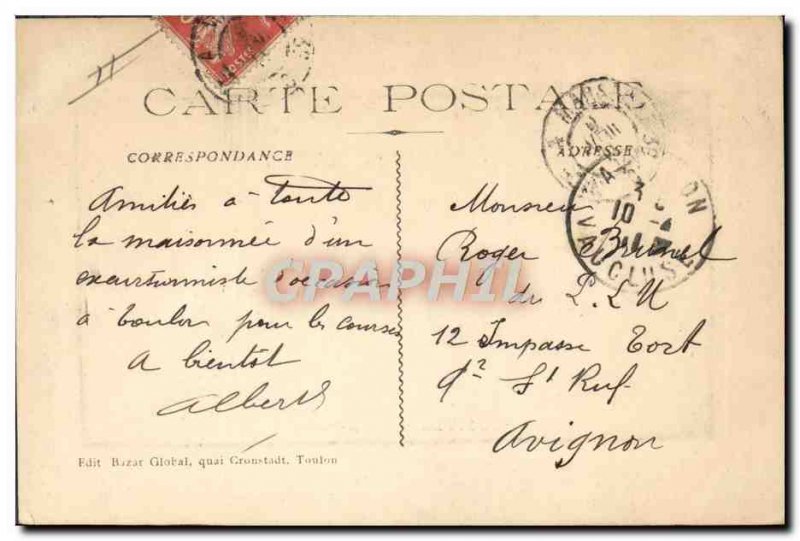 CARTE POSTALE
CORRESPONDANCE
ADRESSE
Amitiés à toute
la maisonnée d'un
excurtionniste d'occasion
à Toulon pour les courses
A bientôt
Albert
Monsieur
Roger Brunel
du P.L.U
12 Impasse Tort
St Ruf
Avignon
Edit Bazar Global, quai Cronstadt, Toulon
CPRAPHIL
VAUCLUSE
10